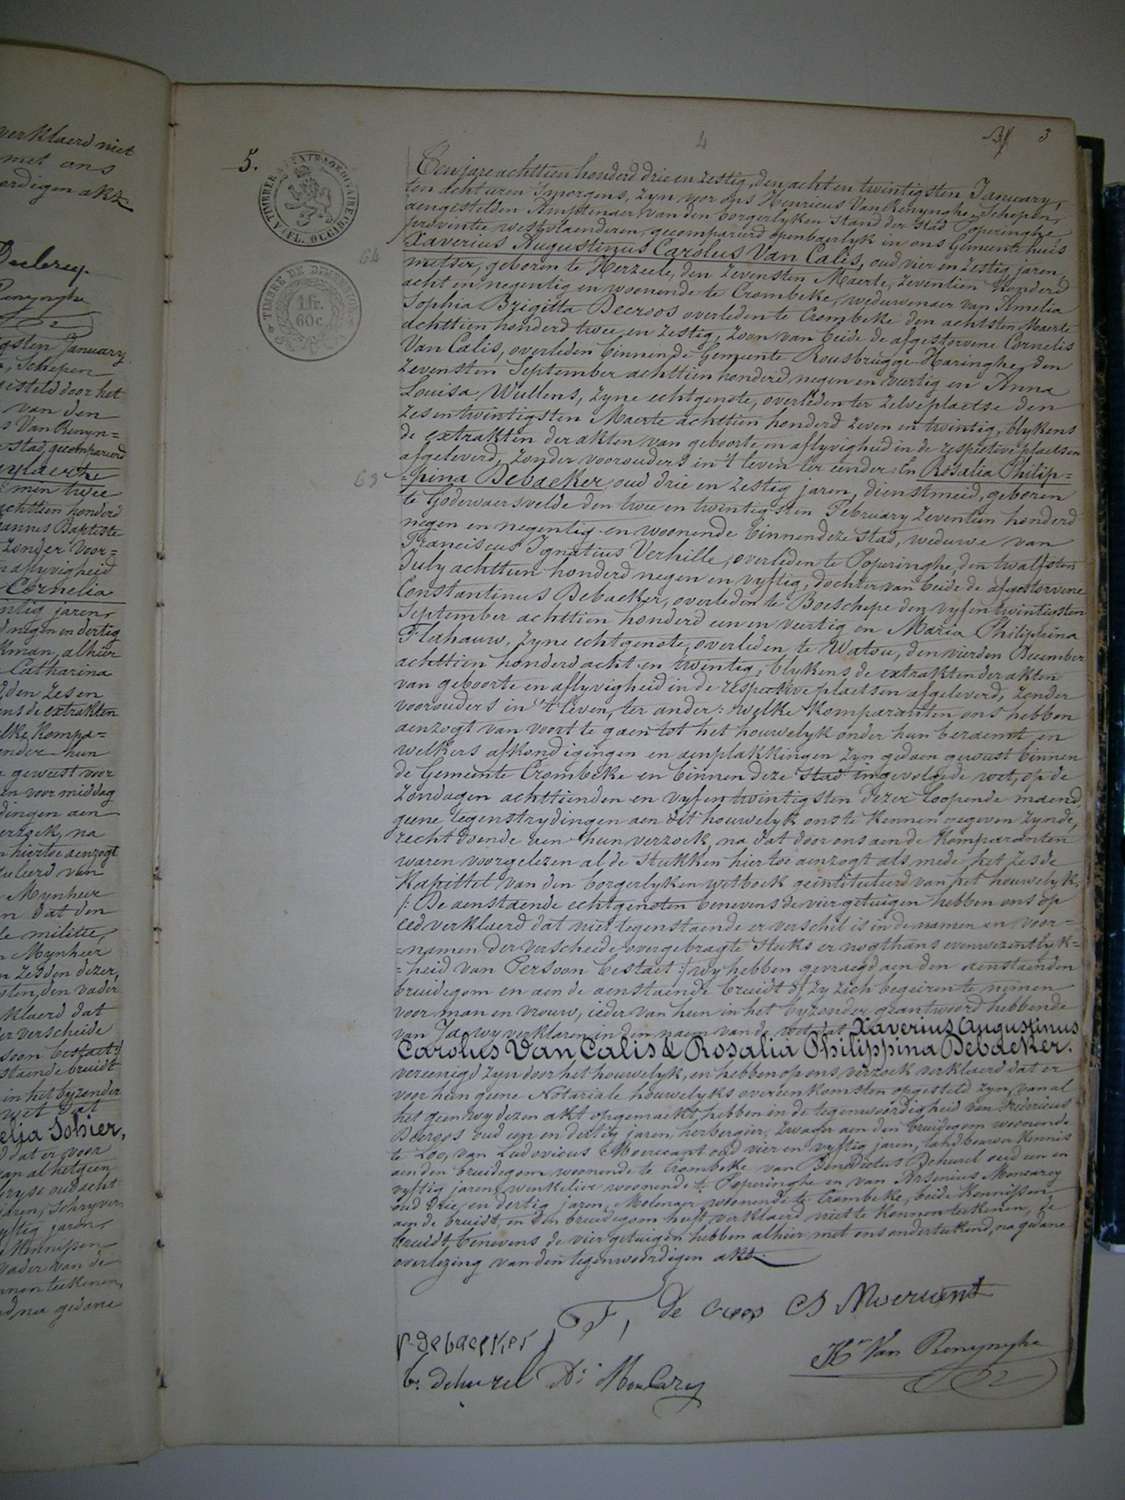 verklaerd niet
met ons
Declercq.
gsten January
, Schepen
gesteld door het
van den
s Van Renyn=
stad, gecompareerd
min twee
achttien honderd
Baptiste
zonder voor=
aflyvigheid
Cornelia
ntig jaren,
negen en dertig
alhier
Catharina
den zes en
ens de extrakten
elke Kompa=
onder hun
geweest voor
en voormiddag
dingen aen
verzoek, na
hiertoe aenzogt
Mynheer
n dat den
le militie,
n Mynheer
den vader
klaerd dat
er verscheide
soon bestaet
staende bruidt
in het byzonder
wet dat
elia Sohier,
dat er voor
van al hetgeen
jaren, Schryver,
yftig jaren
Kennissen
vader van de
nnen teekenen,
na gedane
4
3
5.
TIMBRE EXTRAORDINAIRE
V. FL. OCCID.
TIMBRE DE DIMENSION
1 fr.
60 c.
64
63
Ten jare achttien honderd drie en zestig, den acht en twintigsten January,
ten acht uren 's morgens, zyn voor ons Henricus Van Renynghe, Schepen,
aengestelden Amptenaer van den borgerlyken stand der stad Poperinghe
provintie westvlaenderen, gecompareerd openbaerlyk in ons Gemeentehuis
Xaverius Augustinus Carolus Van Calis, oud vier en zestig jaren,
metser, geboren te Herzeele, den zevensten Maerte, zeventien honderd
acht en negentig en woonende te Crombeke, weduwenaer van Amelia
Sophia Brigitta Decroos overleden te Crombeke den achtsten Maerte
achttien honderd twee en zestig, zoon van beide de afgestorvene Cornelis
Van Calis, overleden binnen de Gemeente Rousbrugge-Haringhe, den
zevensten September achttien honderd negen en veertig en Anna
Louisa Wullens, zyne echtgenote, overleden ter zelve plaetse den
zes en twintigsten Maerte achttien honderd zeven en twintig, blykens
de extrakten der akten van geboorte en aflyvigheid in de respective plaetsen
afgeleverd, zonder voorouders in 't leven ter eender: En Rosalia Philip=
=pina Debaeker, oud drie en zestig jaren, dienstmeid, geboren
te Godewaersvelde den twee en twintigsten February zeventien honderd
negen en negentig en woonende binnen deze stad, weduwe van
Franciscus Ignatius Verhille, overleden te Poperinghe, den twalfsten
July achttien honderd negen en vyftig, dochter van beide de afgestorvene
Constantinus Debaeker, overleden te Boeschepe den vyfentwintigsten
September achttien honderd een en veertig en Maria Philippina
Flahauw, zyne echtgenote, overleden te Watou, den vierden December
achttien honderd acht en twintig, blykens de extrakten der akten
van geboorte en aflyvigheid in de respective plaetsen afgeleverd, zonder
voorouders in 't leven, ter ander: welke komparanten ons hebben
aenzogt van voort te gaen tot het houwelyk onder hun beraemt, en
welkers afkondigingen en aenplakkingen zyn gedaen geweest binnen
de Gemeente Crombeke en binnen deze stad ingevolge de wet, op de
zondagen achttienden en vyfentwintigsten dezer loopende maend
geene tegenstrydingen aen dit houwelyk ons te kennen gegeven zynde,
recht doende aen hun verzoek, na dat door ons aen de komparanten
waren voorgelezen al de stukken hiertoe aenzogt als mede het zesde
kapittel van den borgerlyken wetboek geïntituleerd van het houwelyk,
/: De aenstaende echtgenoten benevens de vier getuigen hebben ons op
eed verklaerd dat niettegenstaende er verschil is in de namen en voor=
=namen der verscheide overgebragte stuks er nogthans evenwezentlyk=
=heid van Persoon bestaet :/ wy hebben gevraegd aen den aenstaenden
bruidegom en aen de aenstaende bruidt of zy zich begeiren te nemen
voor man en vrouw, ieder van hun in het byzonder geantwoord hebbende
van Ja, wy verklaren in den naem van de wet, dat Xaverius Augustinus
Carolus Van Calis & Rosalia Philippina Debaeker.
vereenigd zyn door het houwelyk, en hebben op ons verzoek verklaerd dat er
voor hun geene Notariale houwelyks overeenkomsten opgesteld zyn, van al
het geen wy dezen akt opgemaekt hebben in de tegenwoordigheid van Fredericus
Decroos oud een en dertig jaren, herbergier, zwager aen den bruidegom woonende
te Loo, van Ludovicus Moerieant oud vier en vyftig jaren, landbouwer kennis
aen den bruidegom woonende te Crombeke van Benedictus Dehurel oud een en
vyftig jaren, winkelier woonende te Poperinghe en van Arsenius Moncarey
oud drie en dertig jaren, Molenaer woonende te Crombeke, beide kennissen
aen de bruidt, en den bruidegom heeft verklaerd niet te kennen teekenen, de
bruidt, benevens de vier getuigen hebben alhier met ons onderteekend, na gedane
overlezing van den tegenwoordigen akt.
F, de Croos
r debaeker
b. dehurel
Van Renynghe